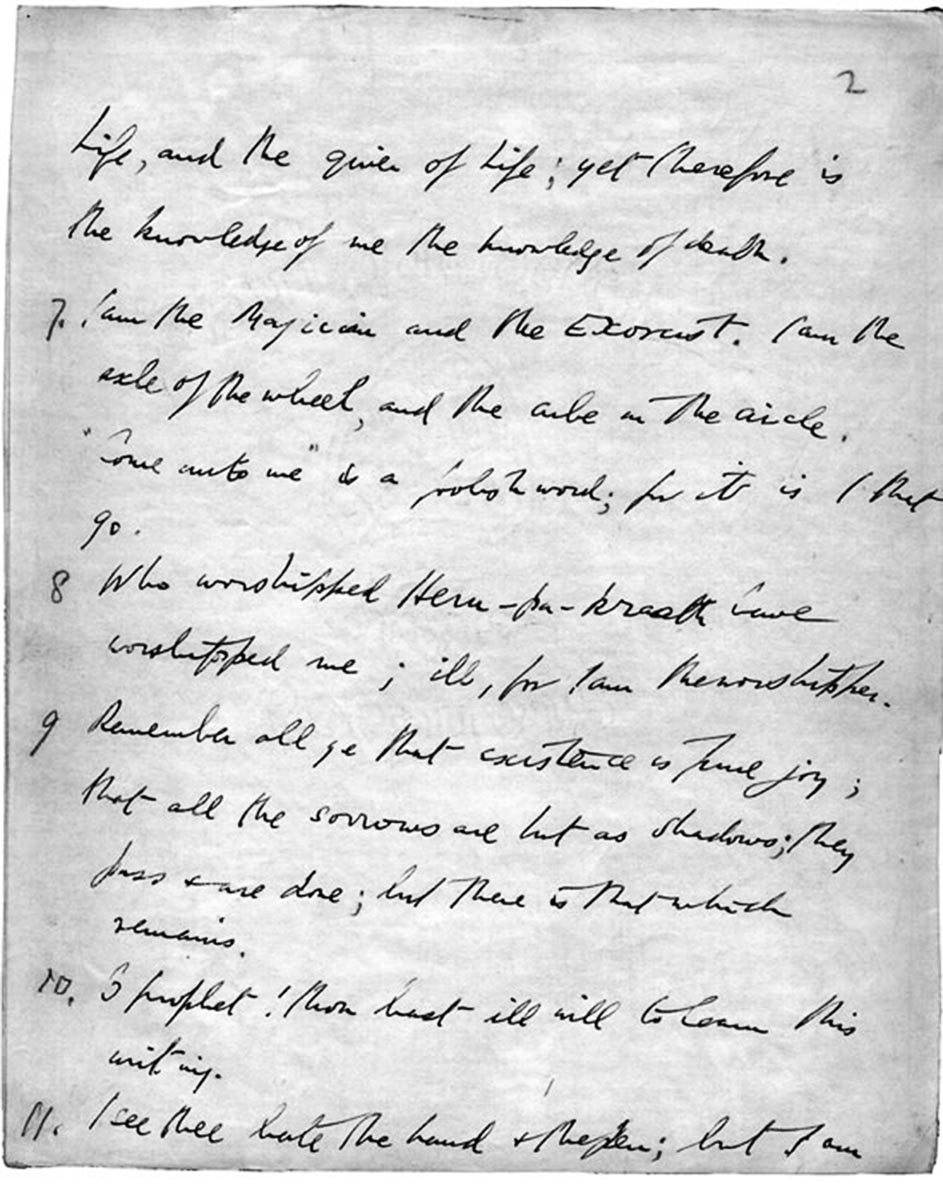 2
Life, and the giver of Life; yet therefore is
the knowledge of me the knowledge of death.
7. I am the Magician and the Exorcist. I am the
axle of the wheel, and the cube in the circle.
"Come unto me" is a foolish word; for it is I that
go.
8 Who worshipped Heru-pa-kraath have
worshipped me; ill, for I am the worshipper.
9 Remember all ye that existence is pure joy;
that all the sorrows are but as shadows; they
pass & are done; but there is that which
remains.
10. O prophet! thou hast ill will to learn this
writing.
11. I see thee hate the hand & the pen; but I am